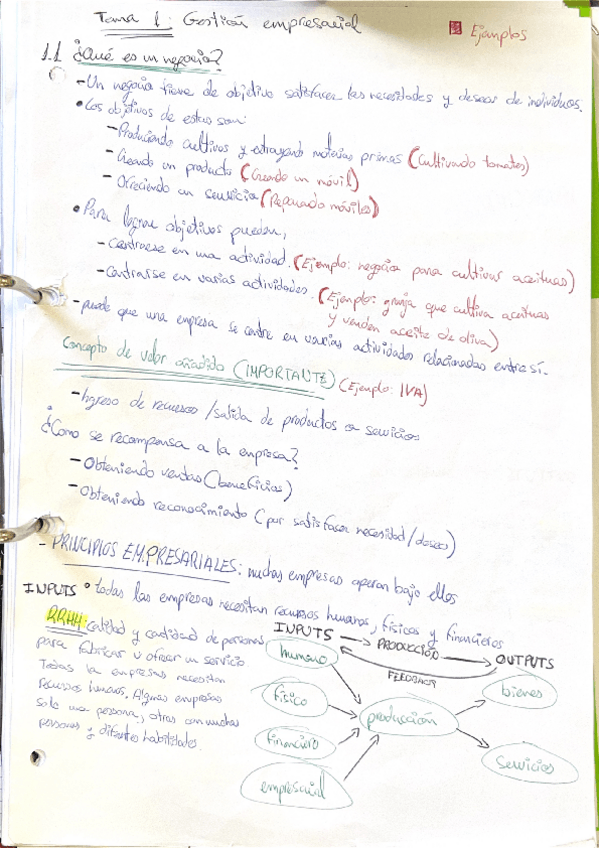 Tema 1: Gestión empresarial
Ejemplos
1.1 ¿Qué es un negocio?
- Un negocio tiene de objetivo satisfacer las necesidades y deseos de individuos.
• Los objetivos de estos son:
- Produciendo cultivos y extrayendo materias primas (Cultivando tomates)
- Creando un producto (Creando un móvil)
- Ofreciendo un servicio (Reparando móviles)
• Para lograr objetivos pueden,
- Centrarse en una actividad. (Ejemplo: negocio para cultivar aceitunas)
- Centrarse en varias actividades. (Ejemplo: granja que cultiva aceitunas
y venden aceite de oliva)
- puede que una empresa se centre en varias actividades relacionadas entre sí.
Concepto de valor añadido (IMPORTANTE) (Ejemplo: IVA)
- Ingreso de recursos / salida de productos o servicios
¿Como se recompensa a la empresa?
- Obteniendo ventas (beneficios)
- Obteniendo reconocimiento (por satisfacer necesidad/deseo)
- PRINCIPIOS EMPRESARIALES: muchas empresas operan bajo ellos
INPUTS • todas las empresas necesitan recursos humanos, físicos y financieros
RRHH: calidad y cantidad de personas
para fabricar u ofrecer un servicio
Todas la empresas necesitan
recursos humanos. Algunas empresas
solo una persona, otras con muchas
personas y difentes habilidades.
INPUTS → PRODUCCIÓN → OUTPUTS
FEEDBACK
humano
físico
financiero
empresarial
producción
bienes
servicios